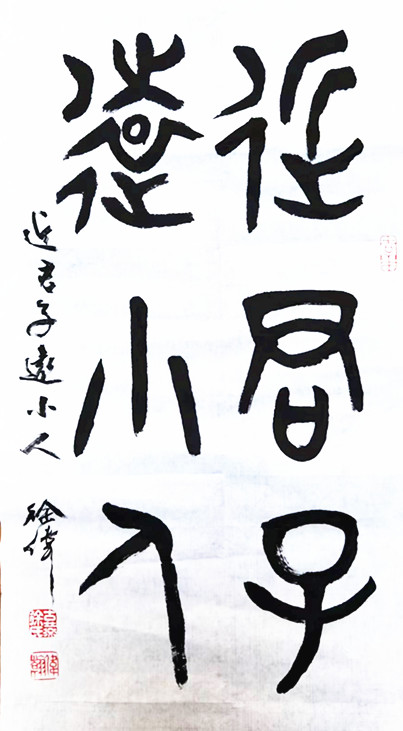 近君子
遠小人
近君子遠小人
徐偉